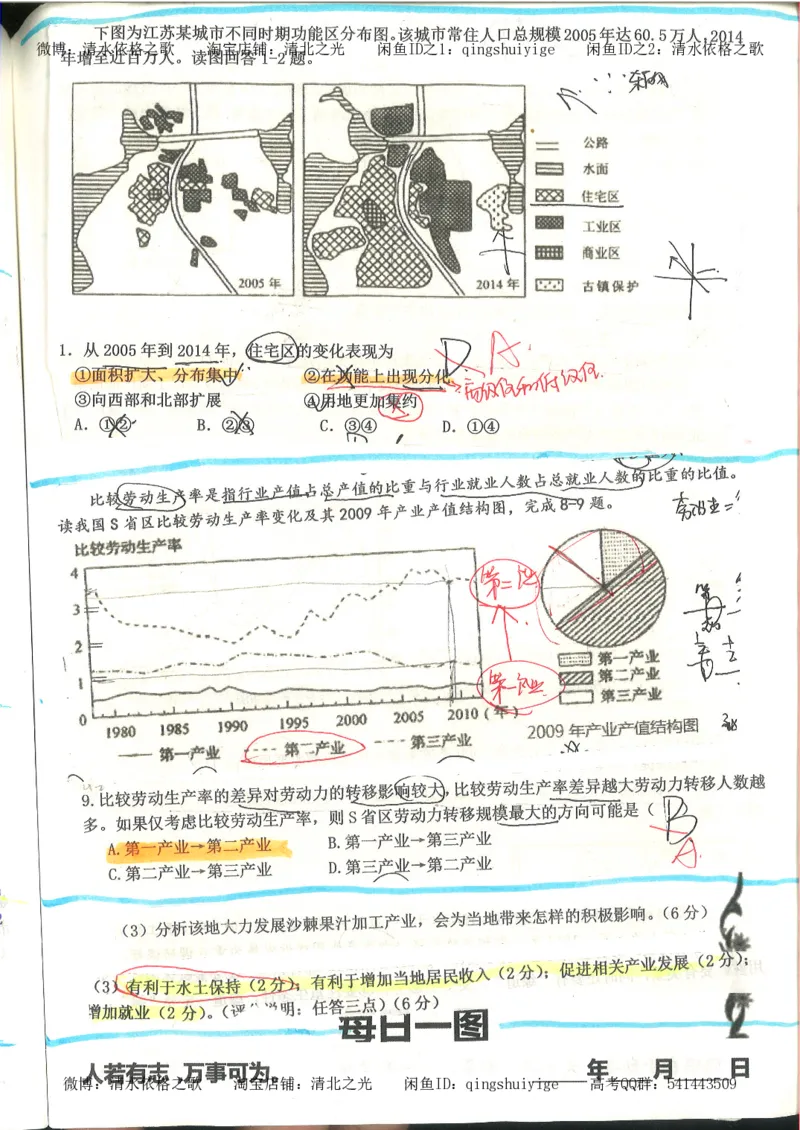 下图为江苏某城市不同时期功能区分布图。该城市常住人口总规模2005年达60.5万人,2014
微博：清水依格之歌 淘宝店铺：清北之光 闲鱼ID之1：qingshuiyige 闲鱼ID之2：清水依格之歌
年增至近百万人。读图回答1-2题。
公路
水面
住宅区
工业区
商业区
古镇保护
2005年
2014年
1．从2005年到2014年，住宅区的变化表现为
D A.
①面积扩大、分布集中 ②在功能上出现分化
高级住和低级住.
③向西部和北部扩展 ④用地更加集约
A．①② B．②③ C．③④ D．①④
比较劳动生产率是指行业产值占总产值的比重与行业就业人数占总就业人数的比重的比值。
读我国S省区比较劳动生产率变化及其2009年产业产值结构图，完成8-9题。
比较劳动生产率
4
3
2
1
0
1980 1985 1990 1995 2000 2005 2010(年)
第一产业 第二产业 第三产业
第二产业
第一产业
第一产业
第二产业
第三产业
2009年产业产值结构图
9.比较劳动生产率的差异对劳动力的转移影响较大,比较劳动生产率差异越大劳动力转移人数越
多。如果仅考虑比较劳动生产率，则S省区劳动力转移规模最大的方向可能是（
B
A.
A.第一产业→第二产业 B.第一产业→第三产业
C.第二产业→第三产业 D.第三产业→第二产业
（3）分析该地大力发展沙棘果汁加工产业，会为当地带来怎样的积极影响。（6分）
（3）有利于水土保持（2分）；有利于增加当地居民收入（2分）；促进相关产业发展（2分）；
增加就业（2分）。（评分说明：任答三点）（6分）
每日一图
人若有志,万事可为。 年 月 日
微博：清水依格之歌 淘宝店铺：清北之光 闲鱼ID：qingshuiyige 高考QQ群：541443509